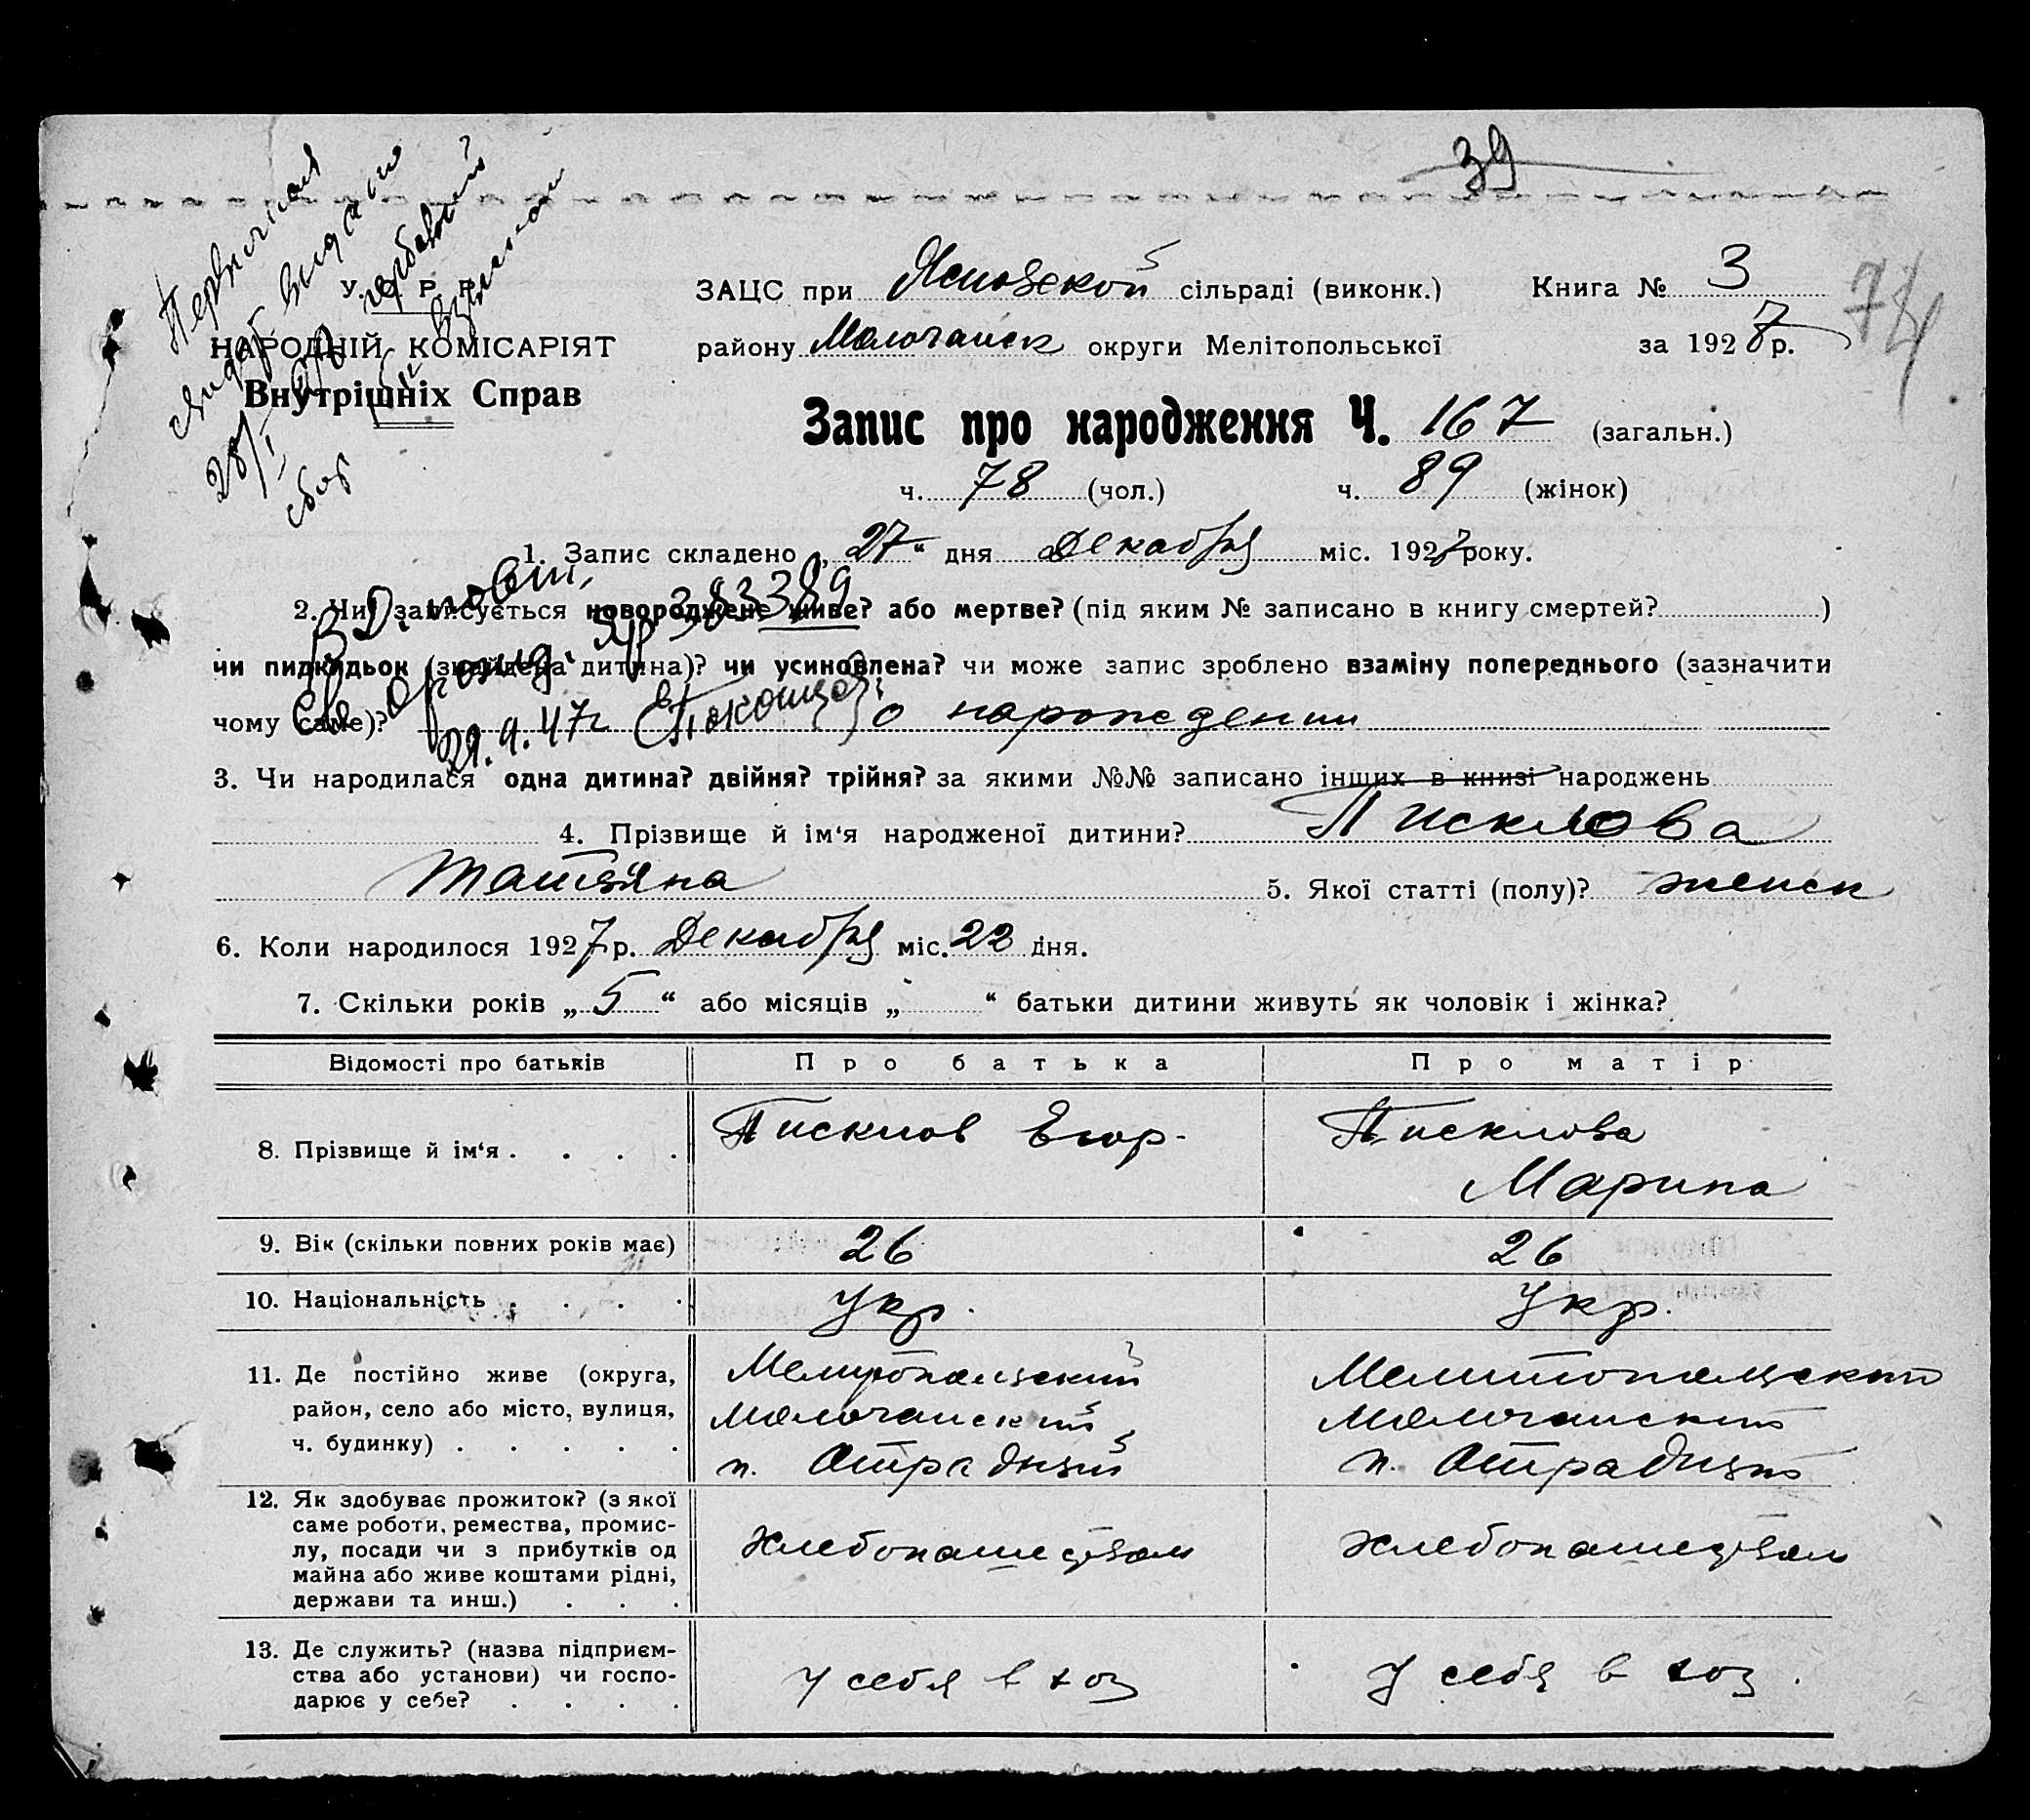 39
74
Первичная
свидет. выдано
28/I
сбор
У. С. Р. Р.
НАРОДНІЙ КОМІСАРІЯТ
Внутрішніх Справ
ЗАЦС при Ясиновской сільраді (виконк.) Книга № 3
району Молочанск округи Мелітопольської за 1927 р.
Запис про народження Ч. 167 (загальн.)
ч. 78 (чол.) ч. 89 (жінок)
1. Запис складено „27“ дня Декабря міс. 1927 року.
2. Чи записується новороджене живе? або мертве? (під яким № записано в книгу смертей? )
чи пидкидьок (знайдена дитина)? чи усиновлена? чи може запис зроблено взаміну попереднього (зазначити
чому саме)? о нарождении
Вд. повт.
св. о рожд. № 383389
29.4.47 г
3. Чи народилася одна дитина? двійня? трійня? за якими №№ записано інших в книзі народжень
4. Прізвище й ім‘я народженої дитини? Писклова
Татьяна 5. Якої статті (полу)? женск
6. Коли народилося 1927 р. Декабря міс. 22 дня.
7. Скільки років „5“ або місяців „ “ батьки дитини живуть як чоловік і жінка?
Відомості про батьків Про батька Про матір
8. Прізвище й ім‘я . . . . Писклов Егор. Писклова
Марина
9. Вік (скільки повних років має) 26 26
10. Національність . . . . Укр. Укр.
11. Де постійно живе (округа, Мелитопольский Мелитопольский
район, село або місто, вулиця, Молочанский Молочанский
ч. будинку) . . . . . п. Отрадный п. Отрадный
12. Як здобуває прожиток? (з якої
саме роботи, ремества, промис-
лу, посади чи з прибутків од Хлебопашеством Хлебопашеством
майна або живе коштами рідні,
держави та инш.) . . .
13. Де служить? (назва підприєм-
ства або установи) чи госпо- У себя в хоз У себя в хоз.
дарює у себе? . . . .